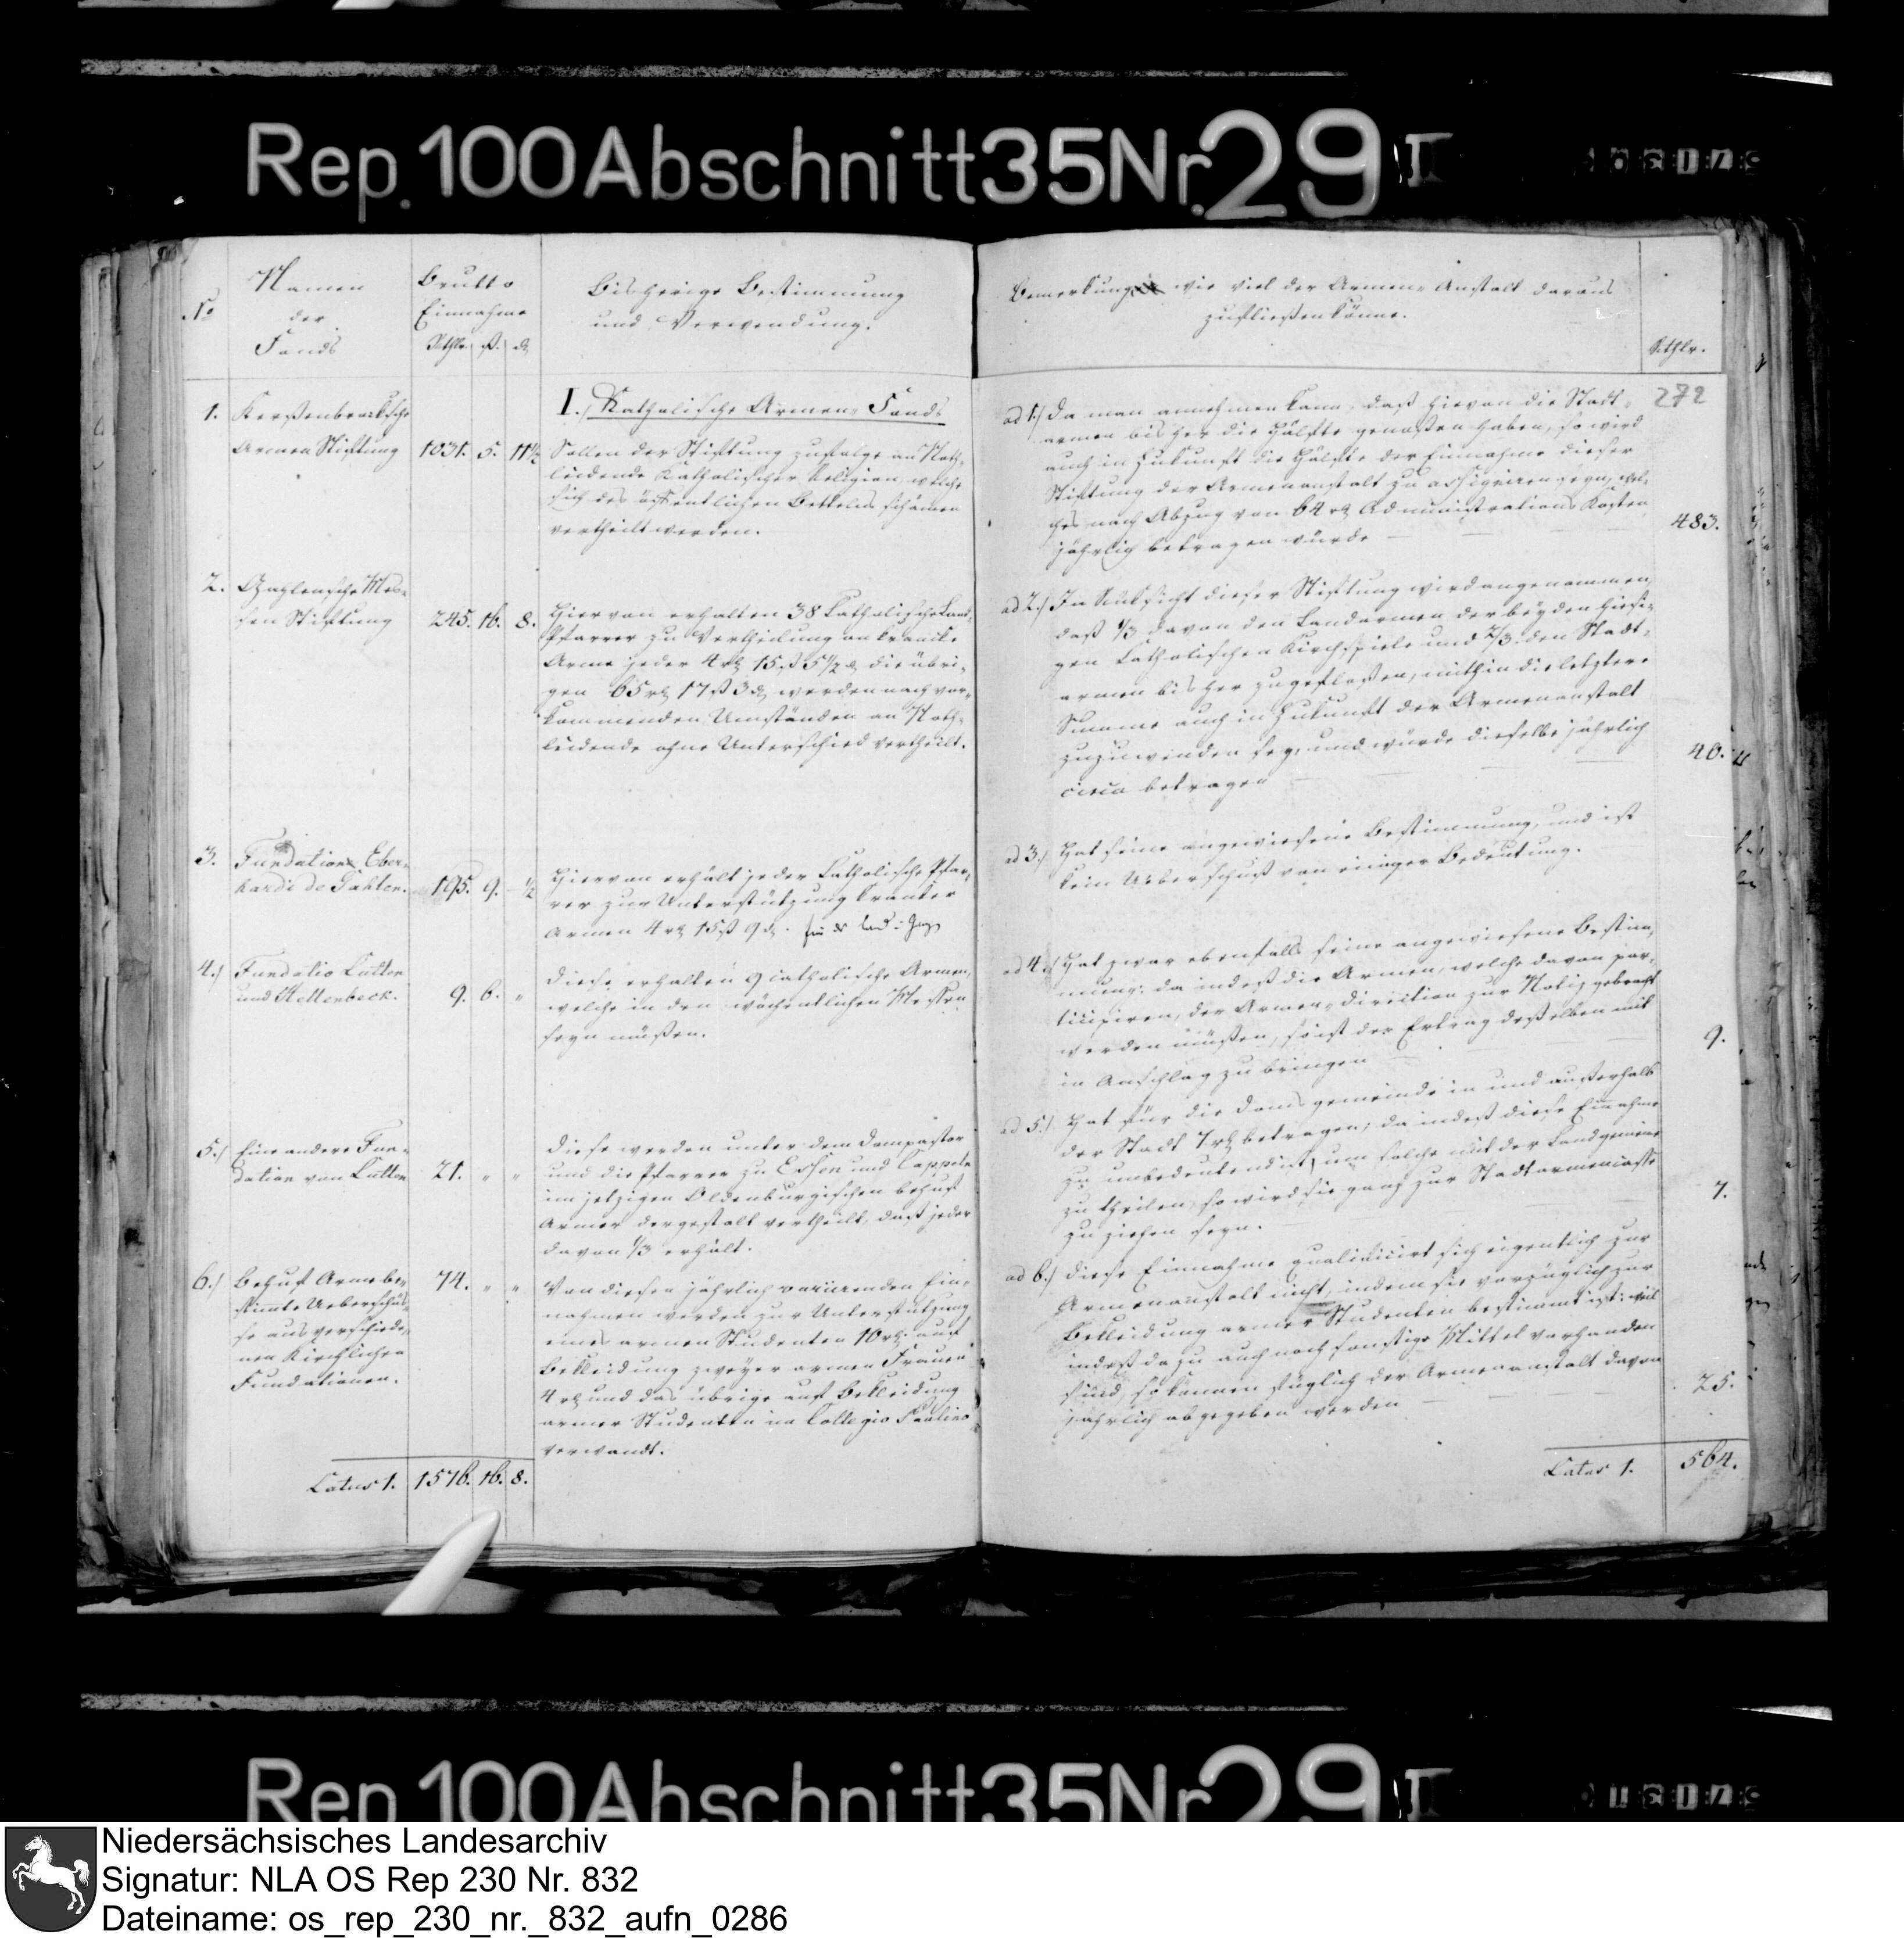 Rep. 100 Abschnitt 35 Nr. 29 I
No
Namen
der
Fonds
Brutto
Einnahme
Rthlr. ß. d
Bisherige Bestimmung
und Verwendung.
I.) Katholische Armen-Fonds
1. Kerßenbrocksche
Armen Stiftung 1031. 5. 11½
Sollen der Stiftung zufolge an Noth-
leidende Katholischer Religion, welche
sich des öffentlichen Bettelns schämen
vertheilt werden.
2.
sen Stiftung 245. 16. 8.
Hiervon erhalten 38 Catholische Land-
Pfarrer zu Vertheilung an krancke
Arme jeder 4 rt 15 ß 5½ d, die übri-
gen 65 rt 17 ß 3 d werden nach vor-
kommenden Umständen an Noth-
leidende ohne Unterschied vertheilt.
3. Fundation Eber-
hardi de 195. 9. – ½
Hiervon erhält jeder Catholische Pfar-
rer zur Unterstützung kranker
Armen 4 rt 15 ß 9 d.
4.) Fundatio Lutten
und Kettenbeck. 9. 6. "
Diese erhalten 9 catholische Armen,
welche in den wöchentlichen Messen
seyn müßen.
5.) Eine andere Fun-
dation von Lutten 21. " "
Diese werden unter dem Dompastor
und die Pfarrer zu Essen und Cappeln
im jetzigen Oldenburgischen behuf
Armer dergestalt vertheilt, daß jeder
davon ⅓ erhält.
6.) Behuf Arme be-
stimte Ueberschüs-
se aus verschiede-
nen Kirchlichen
Fundationen. 74. " "
Von diesen jährlich variirenden Ein-
nahmen werden zur Unterstützung
eines armen Studenten 10 rt. auf
Bekleidung zweyer armen Frauen
4 rt und das übrige auf Bekleidung
armer Studenten im Collegio Paulino
verwandt.
Latus 1. 1576. 16. 8.
Bemerkung wie viel der Armen-Anstalt daraus
zufließen könne.
Rthlr.
272
ad 1.) Da man annehmen kann, daß hievon die Stadt-
armen bisher die Hälfte genoßen haben, so wird
auch in Zukunft die Hälfte der Einnahme dieser
Stiftung der Armenanstalt zu assigniren seyn, wel-
ches nach Abzug von 64 rt Administrations Kosten
jährlich betragen würde – 483.
ad 2.) In Rücksicht dieser Stiftung wird angenommen,
daß ⅓ davon den Landarmen der beyden hiesi-
gen Catholischen Kirchspiele und ⅔ den Stadt-
armen bisher zugefloßen, mithin die letztere
Summe auch in Zukunft der Armenanstalt
zuzuwenden sey, und würde dieselbe jährlich
circa betragen 40.
ad 3.) Hat seine angewiesene Bestimmung, und ist
kein Ueberschuß von einiger Bedeutung.
ad 4.) Hat zwar ebenfalls seine angewiesene Bestim-
mung: da indeß die Armen, welche davon par-
ticipiren, der Armen-Direction zur Notiz gebracht
werden müßen, so ist der Ertrag deßelben mit
in Anschlag zu bringen 9.
ad 5.) Hat für die Doms gemeinde in und außerhalb
der Stadt 7 rt betragen; da indeß diese Einnahme
zu unbedeutend ist, um solche mit der Landgemeine
zu theilen, so wird sie ganz zur Stadtarmencasse
zu ziehen seyn. 7.
ad 6.) Diese Einnahme qualificirt sich eigentlich zur
Armenanstalt nicht, indem sie vorzüglich zur
Bekleidung armer Studenten bestimmt ist: weil
indeß dazu auch noch sonstige Mittel vorhanden
sind, so können füglich der Armenanstalt davon
jährlich abgegeben werden – 25.
Latus 1. 564.
Rep. 100 Abschnitt 35 Nr. 29 I
Niedersächsisches Landesarchiv
Signatur: NLA OS Rep 230 Nr. 832
Dateiname: os_rep_230_nr._832_aufn_0286